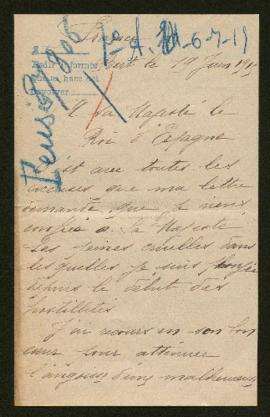 1º A. 6-7-19
Pedir informes
le 19 Juin 191
A Sa Majesté le
Roi d'Espagne
C'est avec toutes les
excuses que ma lettre
que je viens
à Sa Majesté
Les peines cruelles dans
lesquelles je suis plongée
depuis le début des
hostilités
J'ai recours en son bon
cœur pour atténuer
l'angoisse d'une malheureuse